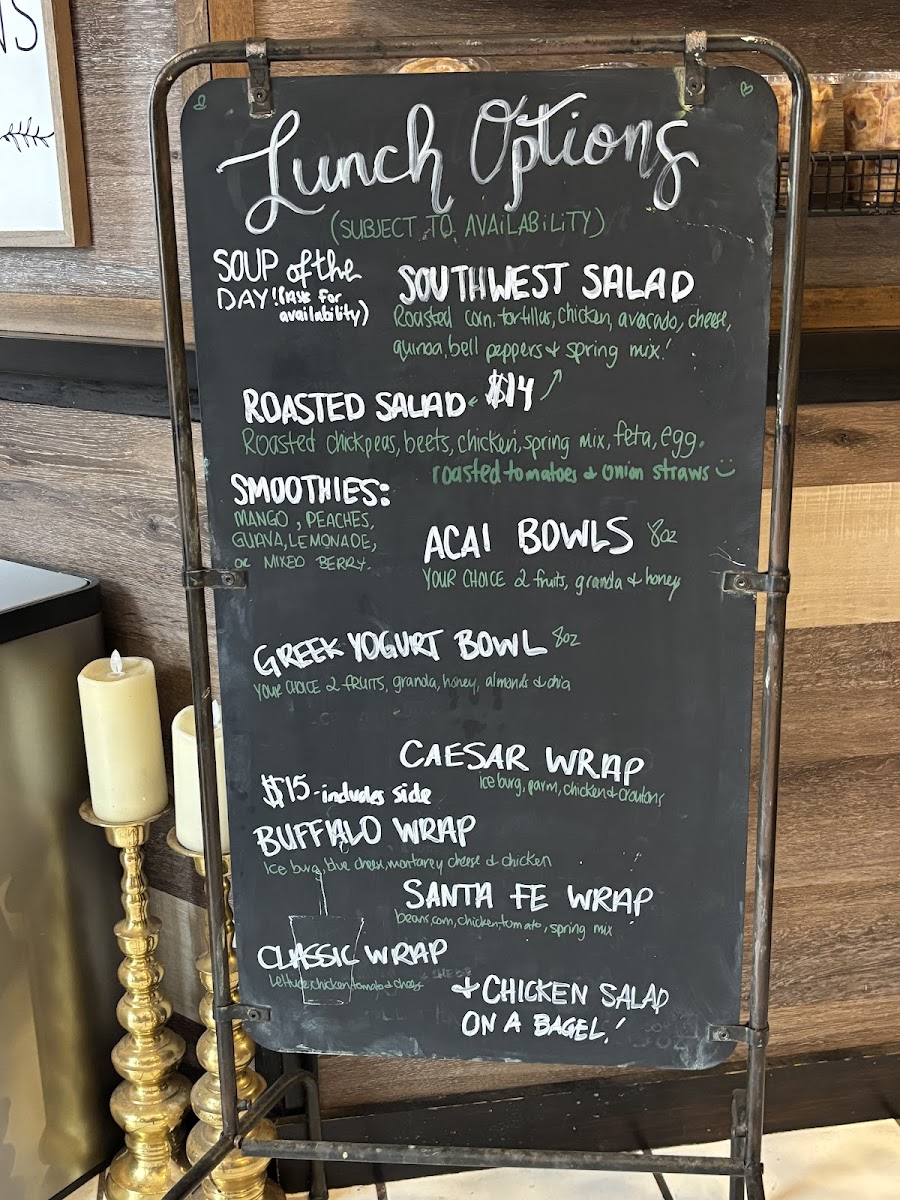 NS
Lunch Options
(SUBJECT TO AVAILABILITY)
SOUP of the
DAY! (ASK for
availability)
SOUTHWEST SALAD
Roasted corn, tortillas, chicken, avocado, cheese,
quinoa, bell peppers & spring mix!
ROASTED SALAD $14
Roasted chickpeas, beets, chicken, spring mix, feta, egg,
roasted tomatoes & onion straws
SMOOTHIES:
MANGO, PEACHES,
GUAVA, LEMONADE,
OR MIXED BERRY.
ACAI BOWLS 8oz
YOUR CHOICE 2 fruits, granola & honey
GREEK YOGURT BOWL 8oz
YOUR CHOICE 2 FRUITS, granola, honey, almonds & chia
CAESAR WRAP
ice burg, parm, chicken & croutons
$15 - includes side
BUFFALO WRAP
Ice burg, blue cheese, monterey cheese & chicken
SANTA FE WRAP
beans, corn, chicken, tomato, spring mix
CLASSIC WRAP
Lettuce, chicken, tomato & cheese
+ CHICKEN SALAD
ON A BAGEL!